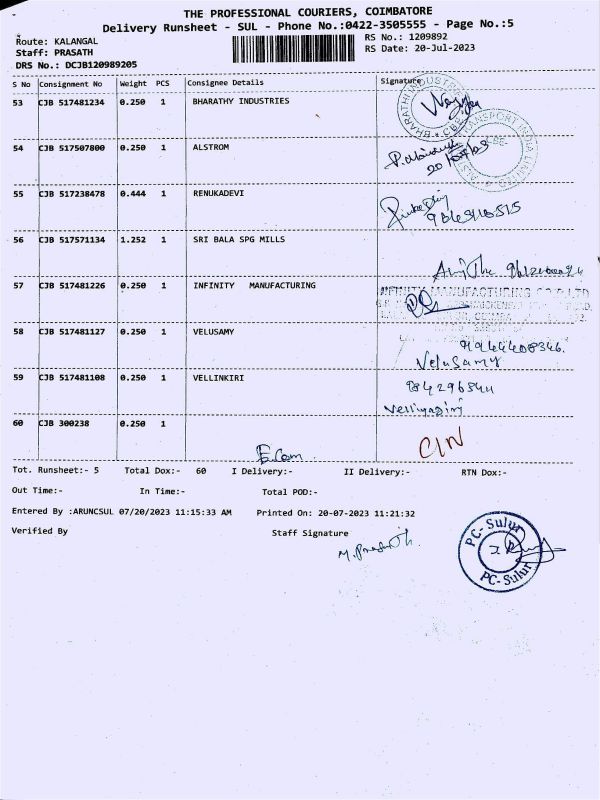 THE PROFESSIONAL COURIERS, COIMBATORE
Delivery Runsheet - SUL - Phone No.:0422-3505555 - Page No.:5
Route: KALANGAL RS No.: 1209892
Staff: PRASATH RS Date: 20-Jul-2023
DRS No.: DCJB120989205
S No Consignment No Weight PCS Consignee Details Signature
53 CJB 517481234 0.250 1 BHARATHY INDUSTRIES
54 CJB 517507800 0.250 1 ALSTROM
20/07/23
55 CJB 517238478 0.444 1 RENUKADEVI
56 CJB 517571134 1.252 1 SRI BALA SPG MILLS
57 CJB 517481226 0.250 1 INFINITY MANUFACTURING
INFINITY MANUFACTURING CO P LTD
58 CJB 517481127 0.250 1 VELUSAMY
Velusamy
59 CJB 517481108 0.250 1 VELLINKIRI
60 CJB 300238 0.250 1
E.Com CIN
Tot. Runsheet:- 5 Total Dox:- 60 I Delivery:- II Delivery:- RTN Dox:-
Out Time:- In Time:- Total POD:-
Entered By :ARUNCSUL 07/20/2023 11:15:33 AM Printed On: 20-07-2023 11:21:32
Verified By Staff Signature
M. Prasath
PC-Sulur
PC-Sulur